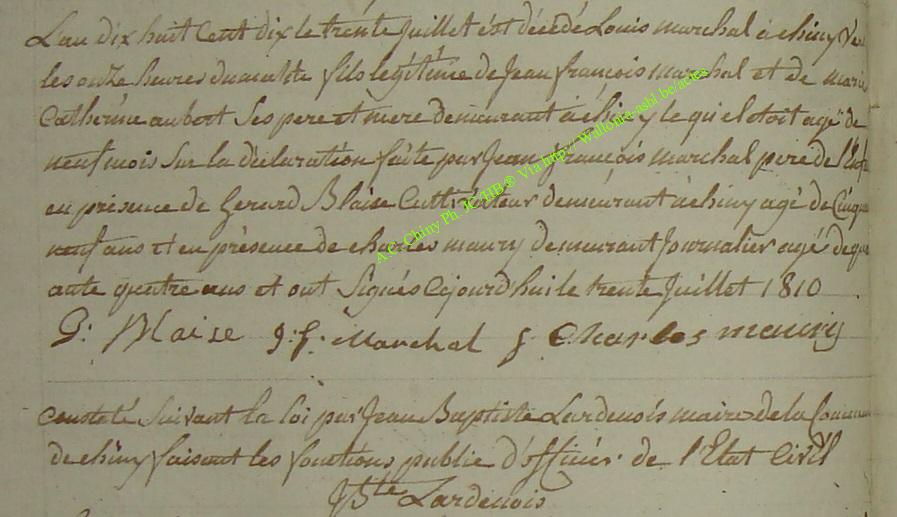 L'an dix huit cent dix le trente Juillet est décédé Louis marchal a chiny ver
les onze heures du matin fils legitime de Jean françois Marchal et de marie
Catherine aubert Ses pere et mere demeurant a chiny le quel etoit agé de
neuf mois Sur la déclaration faite par Jean françois marchal pere de l'Enfa
en présence de Gerard Blaise Cultivateur demeurant à chiny agé de Cinqua
neuf ans et en présence de charles maury demeurant Journalier agé de qua
ante quatre ans et ont Signés cejourd'hui le trente Juillet 1810
G: Blaise J: f: Marchal f Charles maury
constaté Suivant la loi par Jean Baptiste Lardenois maire de la Commun
de chiny faisant les fonctions public d'officier de l'Etat Civil
JBte Lardenois
A.C. Chiny Ph. JC/HB® Via http://Wallonia-asbl.be/actes